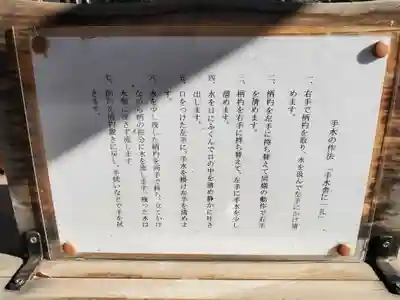 手水の作法 (手水舎に一礼)
一、右手で柄杓を取り、水を汲んで左手にかけ清
めます。
二、柄杓を左手に持ち替えて同様の動作で右手
を清めます。
三、柄杓を右手に持ち替えて、左手に手水を少し
溜めます。
四、水を口にふくんで口の中を清め静かに吐き
出します。
五、口をつけた左手に、手水を掛け左手を清めま
す。
六、水を少し残した柄杓を両手で持ち、立てかけ
ながら柄の部分に水を流します。残った水は
水盤に戻さず流します
七、柄杓を柄杓置きに戻し、手拭いなどで手を拭
きます。